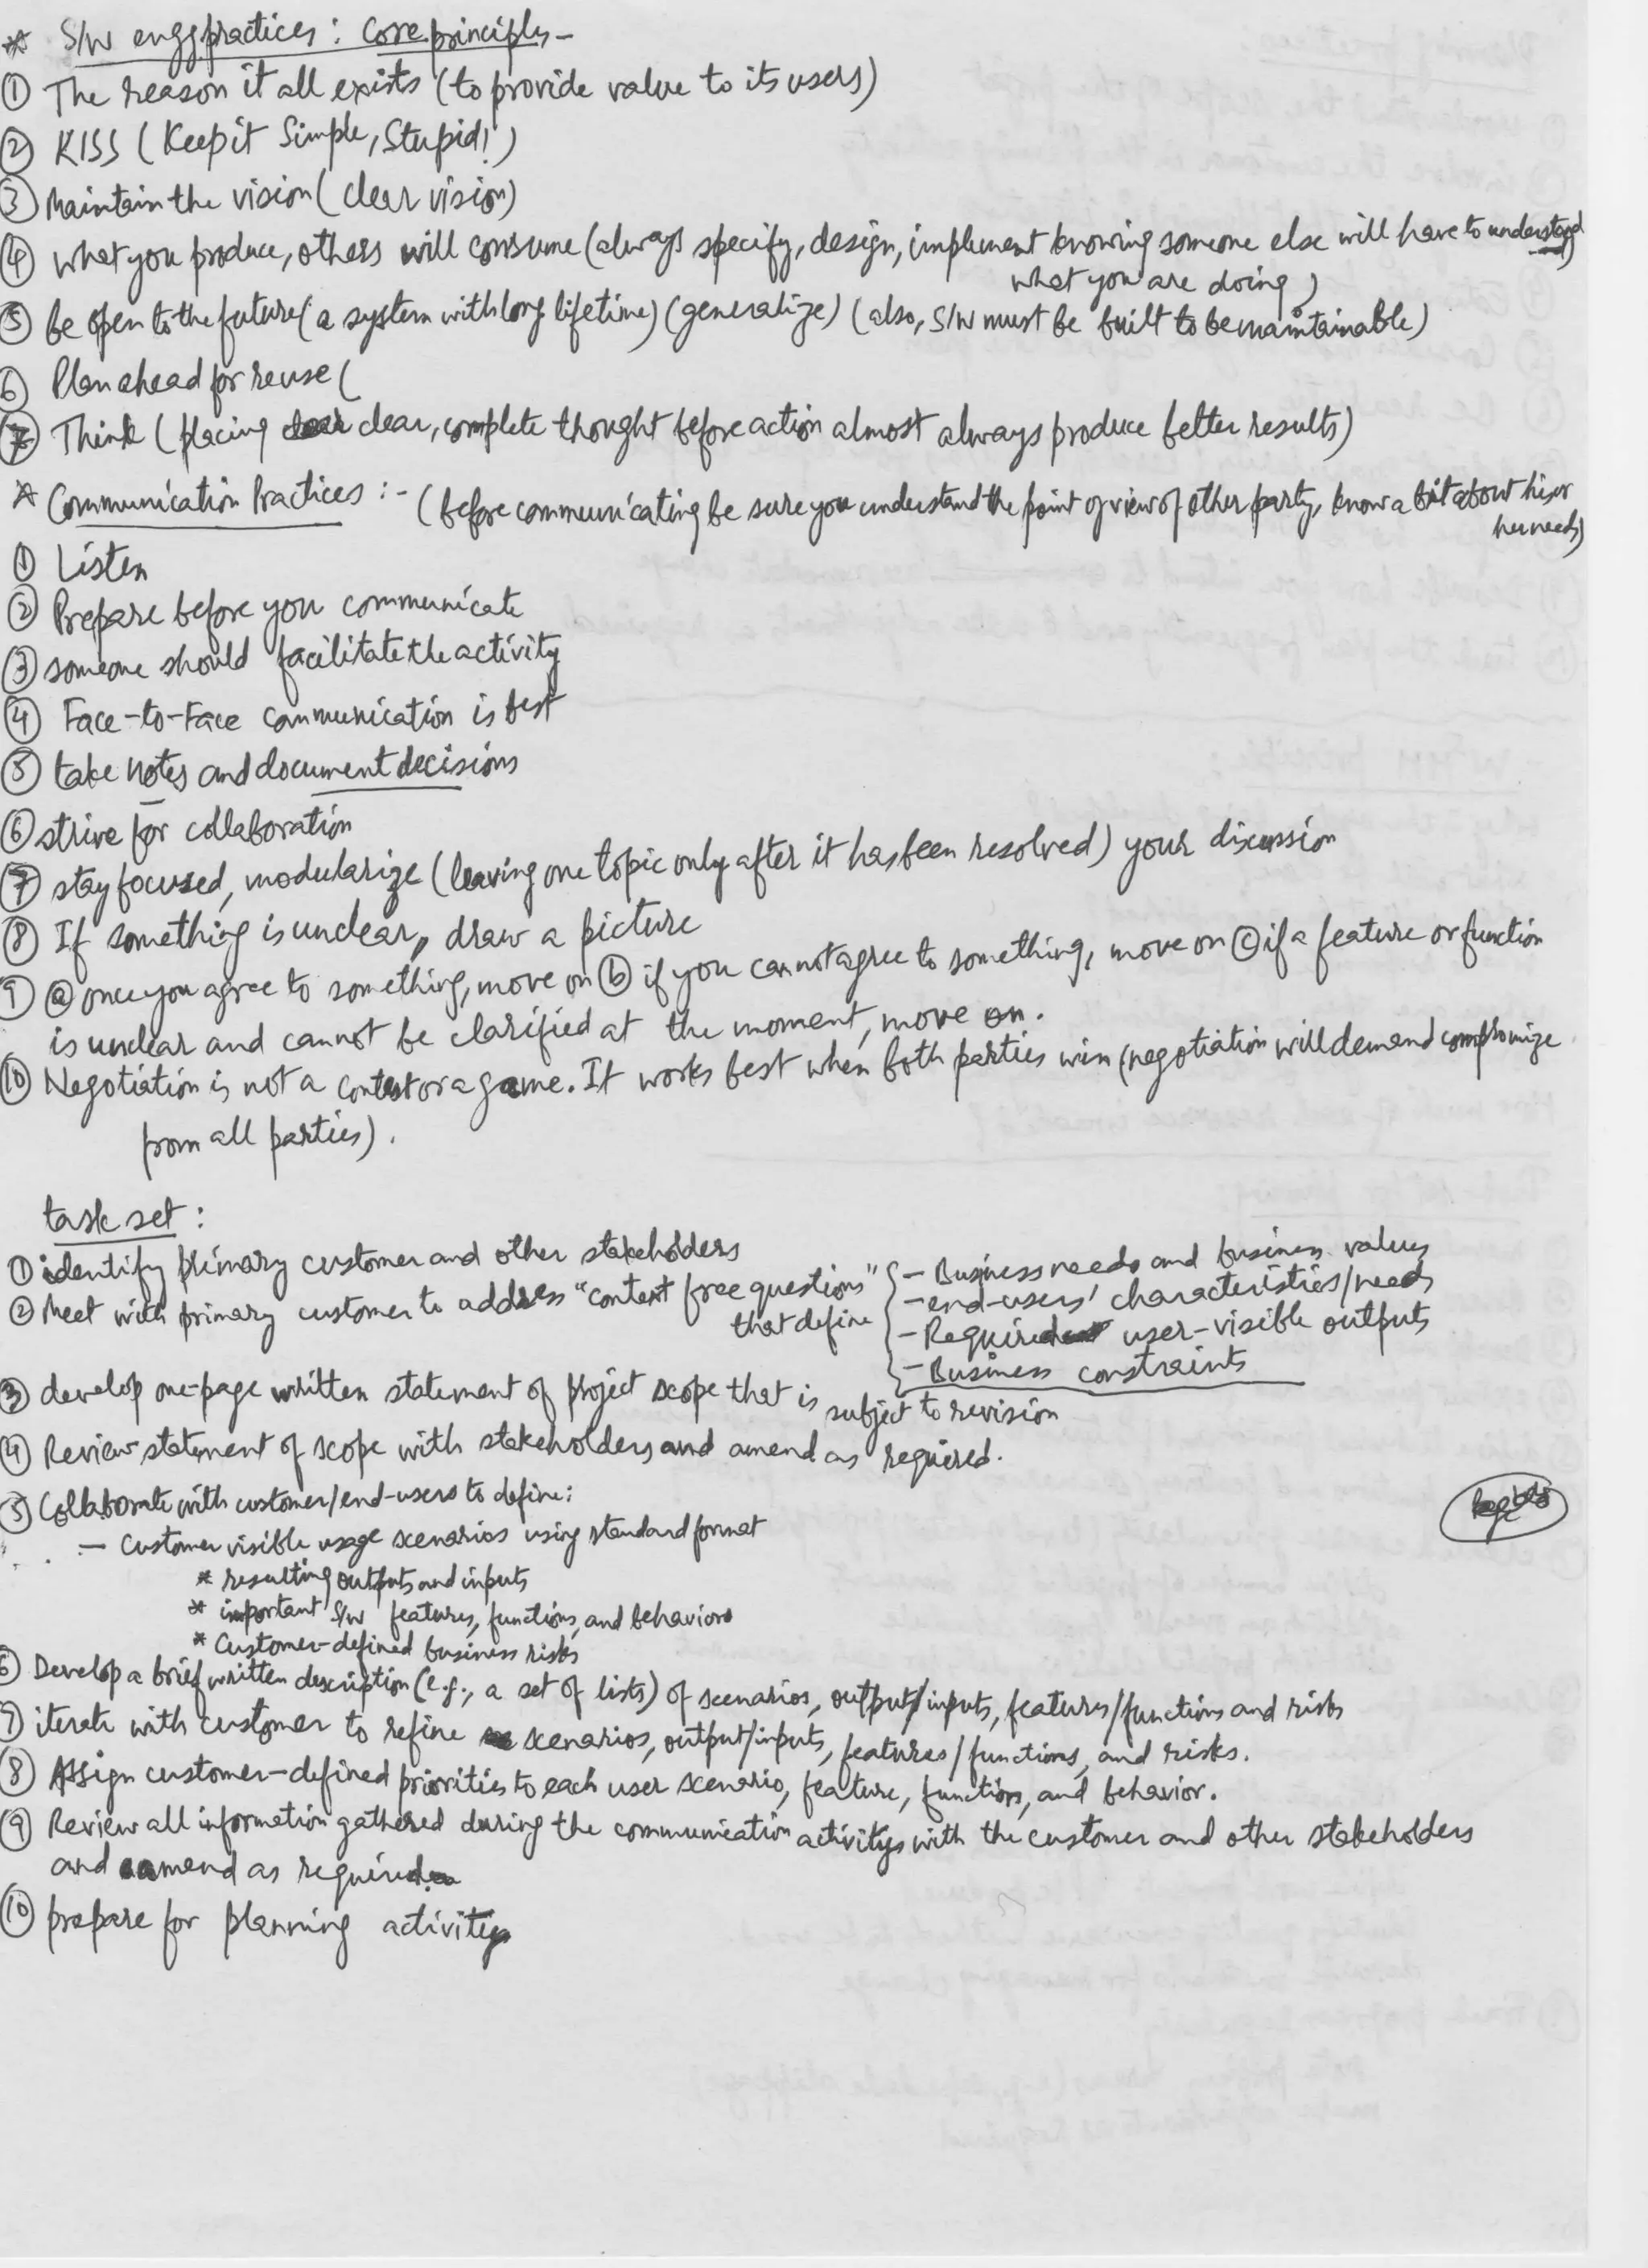 * S/W engg practices : Core principles -
① The reason it all exists (to provide value to its users)
② KISS (Keep it Simple, Stupid!)
③ Maintain the vision (clear vision)
④ What you produce, others will consume (always specify, design, implement knowing someone else will have to understand
what you are doing)
⑤ be open to the future (a system with long lifetime) (generalize) (also, S/W must be built to be maintainable)
⑥ Plan ahead for reuse (
⑦ Think (placing clear, complete thought before action almost always produce better results)
* Communication Practices :- (before communicating be sure you understand the point of view of other party, know a bit about his or
her needs)
① Listen
② Prepare before you communicate
③ someone should facilitate the activity
④ Face-to-Face communication is best
⑤ take notes and document decisions
⑥ strive for collaboration
⑦ stay focused, modularize (leaving one topic only after it has been resolved) your discussion
⑧ If something is unclear, draw a picture
⑨ ⓐ once you agree to something, move on ⓑ if you cannot agree to something, move on ⓒ if a feature or function
is unclear and cannot be clarified at the moment, move on.
⑩ Negotiation is not a contest or a game. It works best when both parties win (negotiation will demand compromize
from all parties).
task set :
① identify primary customer and other stakeholders
② Meet with primary customer to address "context free questions"
that define
- Business needs and business values
- end-users' characteristics/needs
- Required user-visible outputs
- Business constraints
③ develop one-page written statement of project scope that is subject to revision
④ Review statement of scope with stakeholders and amend as required.
⑤ Collaborate with customer/end-users to define:
- Customer visible usage scenarios using standard format
* resulting outputs and inputs
* important S/W features, functions, and behaviors
* Customer-defined business risks
⑥ Develop a brief written description (e.g., a set of lists) of scenarios, output/inputs, features/functions and risks
⑦ iterate with customer to refine scenarios, output/inputs, features/functions, and risks.
⑧ Assign customer-defined priorities to each user scenario, feature, function, and behavior.
⑨ Review all information gathered during the communication activities with the customer and other stakeholders
and amend as required.
⑩ prepare for planning activities